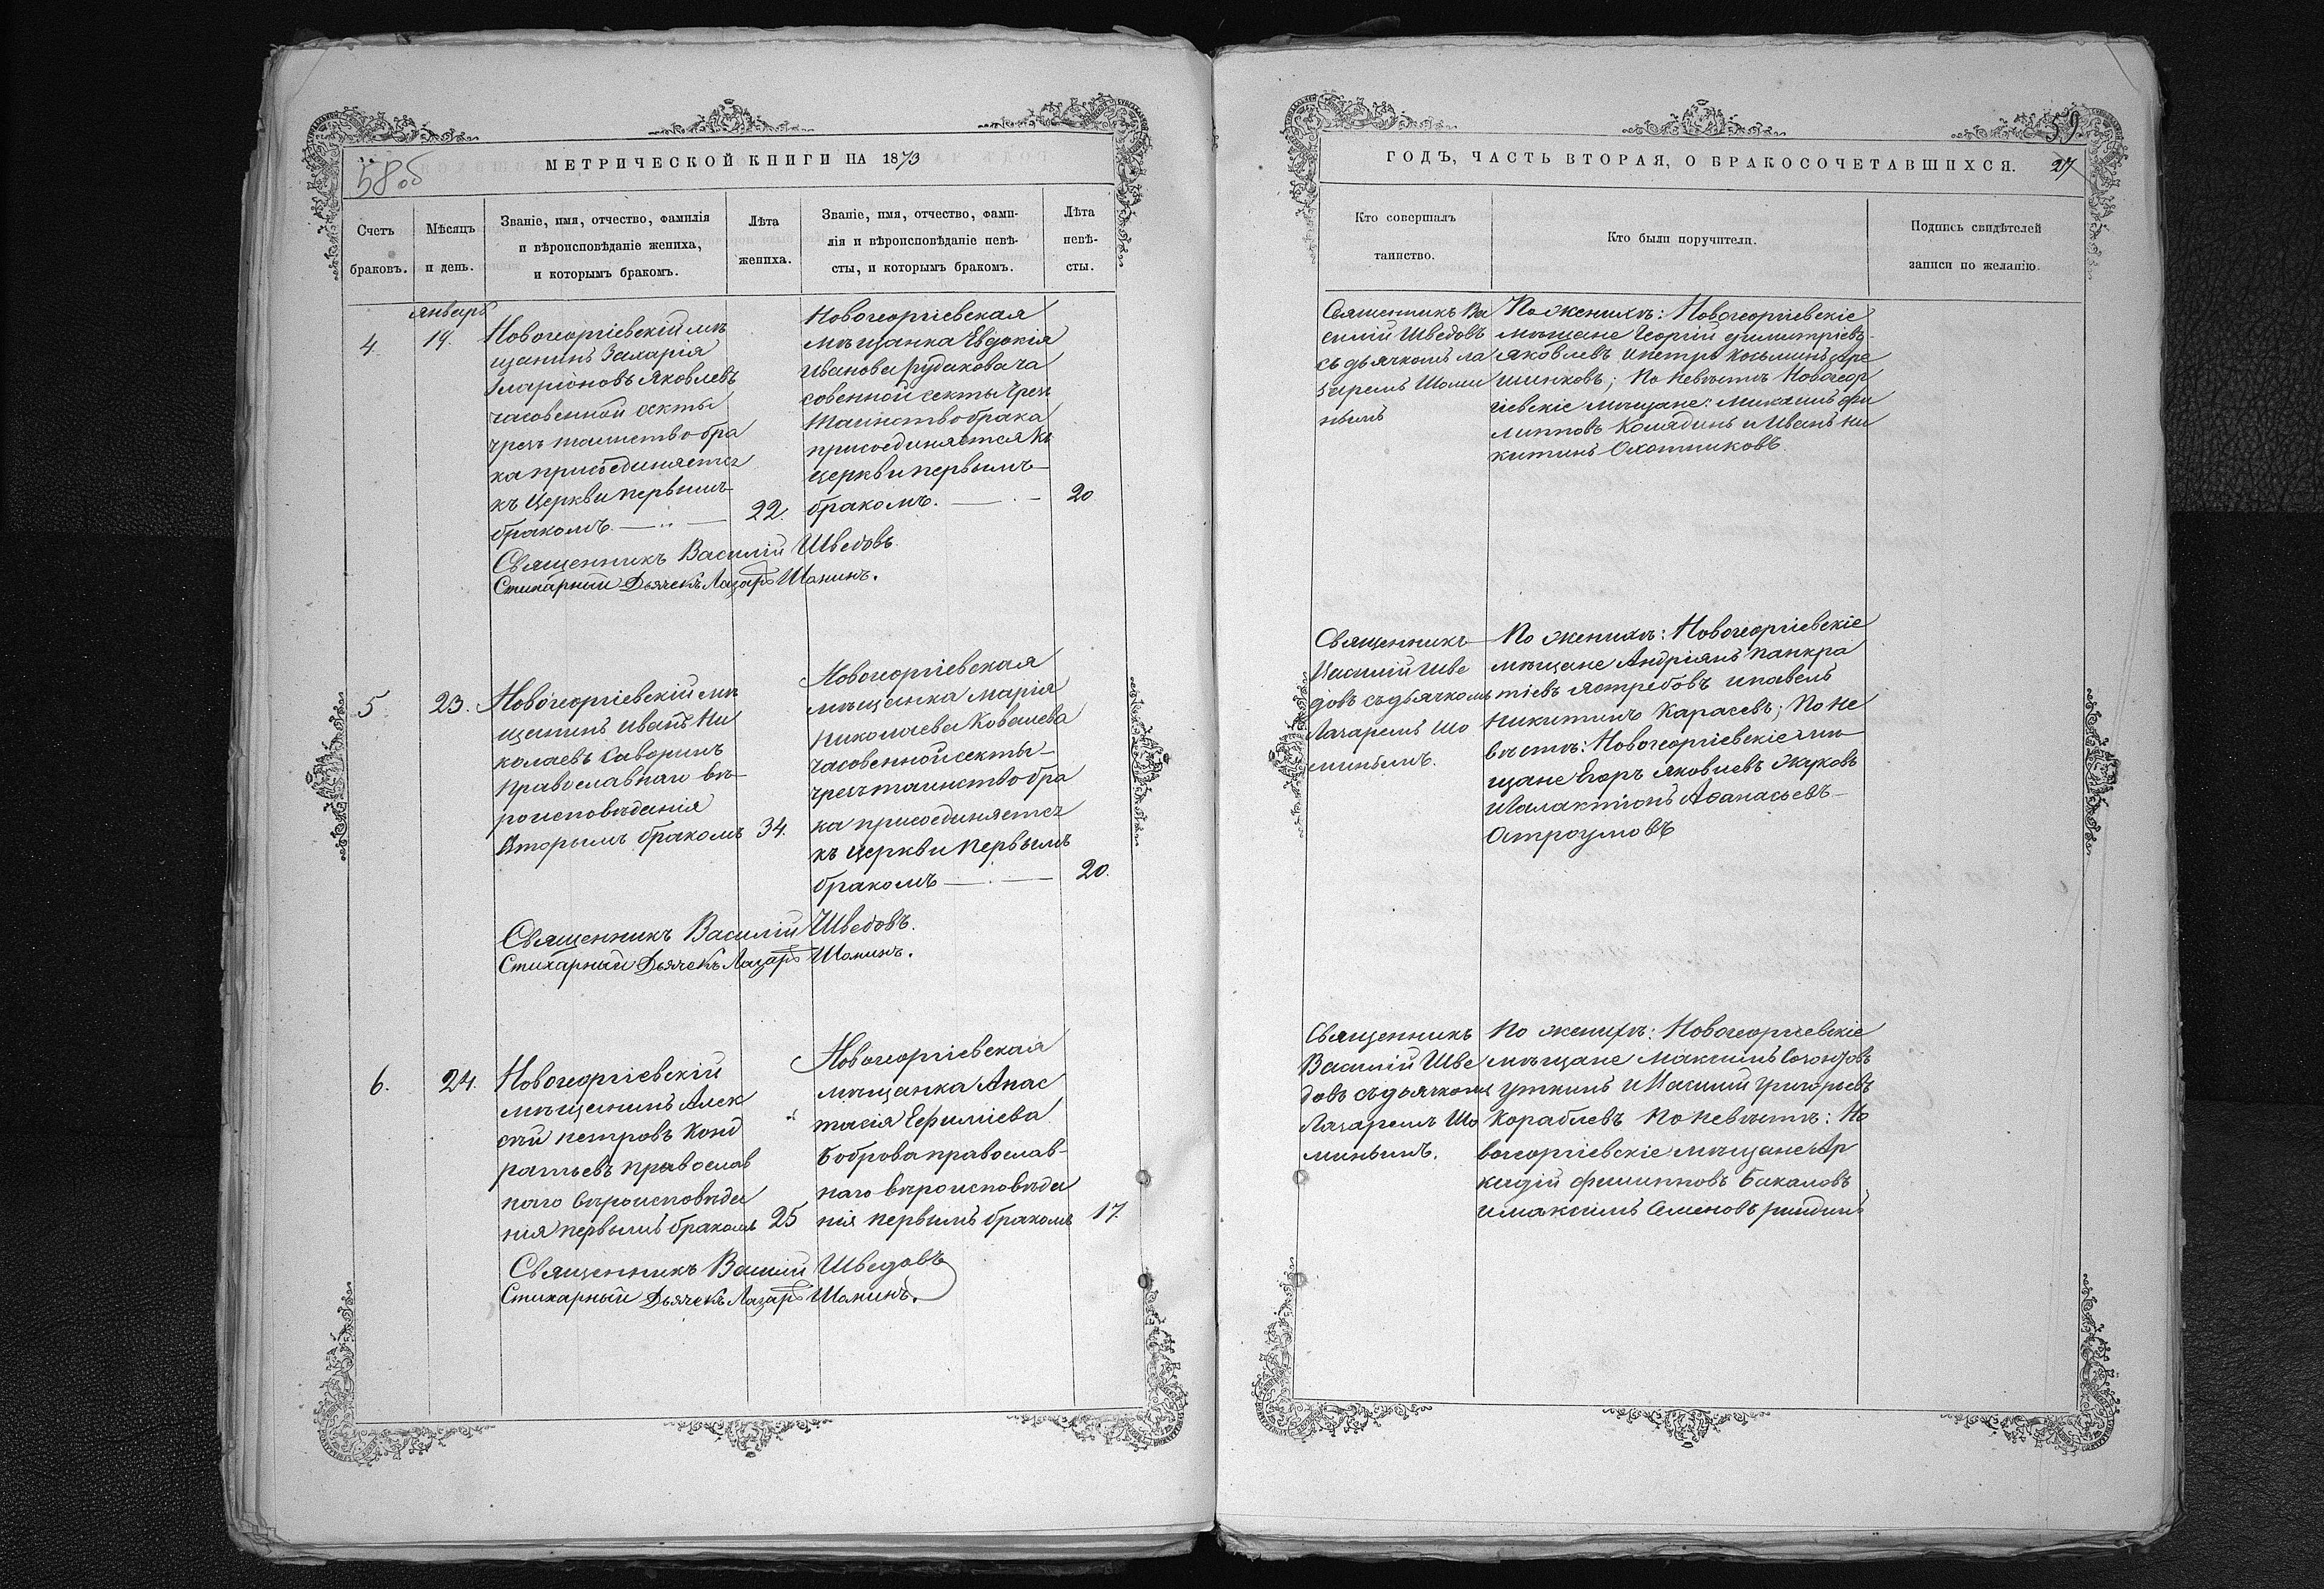 58 об
МЕТРИЧЕСКОЙ КНИГИ НА 1873
Счетъ
браковъ.
Мѣсяцъ
и день.
Званіе, имя, отчество, фамилія
и вѣроисповѣданіе жениха,
и которымъ бракомъ.
Лѣта
жениха.
Званіе, имя, отчество, фами-
лія и вѣроисповѣданіе невѣ-
сты, и которымъ бракомъ.
Лѣта
невѣ-
сты.
январь
4.
19.
Новогеоргіевскій мѣ
щанинъ Захарія
Иларіоновъ Яковлевъ
часовенной секты
чрезъ таинство бра
ка присоединяется
къ Церкви первымъ
бракомъ.
22.
Новогеоргіевская
мѣщанка Евдокія
Иванова Рудакова ча
совенной секты чрез
таинство брака
присоединяется къ
церкви первымъ
бракомъ.
20
Священникъ Василій Шведовъ.
Стихарный Дьячекъ Лазарь Шоминъ.
5
23.
Новогеоргіевскій мѣ
щанинъ Иванъ Ни
колаевъ Саворинъ
православнаго вѣ
роисповѣданія
Вторымъ бракомъ
34.
Новогеоргіевская
мѣщанка Марія
Николаева Ковалева
часовенной секты
чрезъ таинство бра
ка присоединяется
къ церкви первымъ
бракомъ
20.
Священникъ Василій Шведовъ.
Стихарный Дьячекъ Лазарь Шоминъ.
6.
24.
Новогеоргіевскій
мѣщанинъ Алек
сѣй Петровъ Конд
ратьевъ православ
наго вѣроисповѣда
нія первымъ бракомъ
25
Новогеоргіевская
мѣщанка Анас
тасія Ефиміева
Боброва православ-
наго вѣроисповѣда
нія первымъ бракомъ
17
Священникъ Василій Шведовъ
Стихарный Дьячекъ Лазарь Шоминъ.
59
ГОДЪ, ЧАСТЬ ВТОРАЯ, О БРАКОСОЧЕТАВШИХСЯ.
27
Кто совершалъ
таинство.
Кто были поручители.
Подпись свидѣтелей
записи по желанію.
Священникъ Ва
силій Шведовъ
съ дьячкомъ Ла
заремъ Шоми
нымъ
По женихѣ: Новогеоргіевскіе
мѣщане Георгій Димитріевъ
Яковлевъ и Петръ Косьминъ
По невѣстѣ Новогеор
гіевскіе мѣщане: Михаилъ Фи
липповъ Колядинъ и Иванъ Ни
китинъ Охотниковъ
Священникъ
Василій Шве
довъ съ дьячкомъ
Лазаремъ Шо
минымъ.
По женихѣ: Новогеоргіевскіе
мѣщане Андріянъ Панкра
тіевъ Ястребовъ и Павелъ
Никитинъ Карасевъ; По не
вѣстѣ: Новогеоргіевскіе мѣ
щане Егоръ Яковлевъ Жуковъ
и Галактіонъ Аѳанасьевъ
Астроумовъ
Священникъ
Василій Шве
довъ съ дьячкомъ
Лазаремъ Шо
минымъ.
По женихѣ: Новогеоргіевскіе
мѣщане Максимъ Созонтовъ
Уткинъ и Василій Григорьевъ
Кораблевъ По невѣстѣ: Но
вогеоргіевскіе мѣщане Ар
кадій Филипповъ Бакаловъ
и Максимъ Семеновъ